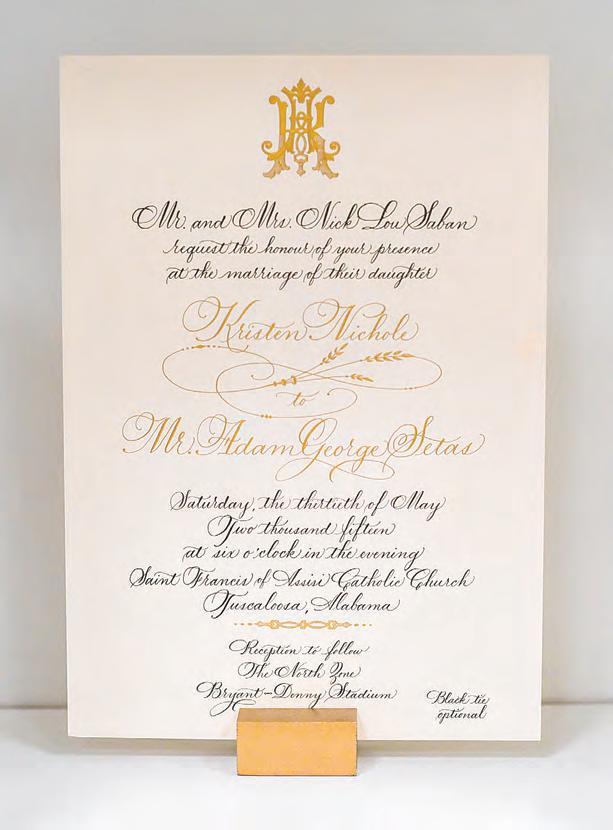 Mr. and Mrs. Nick Lou Saban
request the honour of your presence
at the marriage of their daughter
Kristen Nichole
to
Mr. Adam George Setas
Saturday, the thirtieth of May
Two thousand fifteen
at six o'clock in the evening
Saint Francis of Assisi Catholic Church
Tuscaloosa, Alabama
Reception to follow
The North Zone
Bryant-Denny Stadium
Black tie
optional